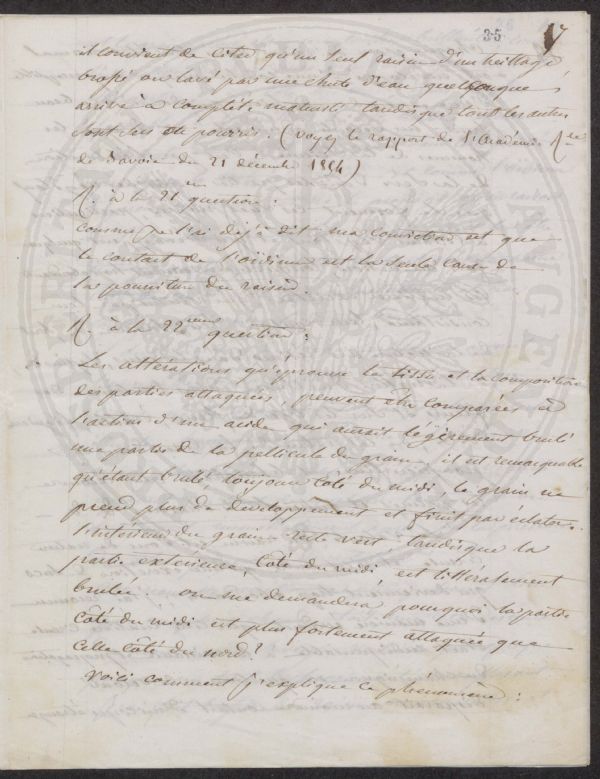 35 17
il convient de citer qu'un seul raisin d'un treillage
brossé ou lavé par une chute d'eau quelconque,
arrive à complète maturité tandisque tout les autres
sont secs ou pourris. (voyez le rapport de l'académie Rle
de Savoie du 21 décembre 1854)
R. à la 21me question:
comme je l'ai déjà dit ma conviction est que
le contact de l'oïdium est la seule cause de
la pourriture du raisin.
R. à la 22eme question:
Les altérations qu'éprouve le tissu et la composition
des parties attaquées, peuvent être comparées à
l'action d'une acide qui aurait légèrement brulé
une partie de la pellicule du grain, il est remarquable
qu'étant brulé toujours côté du midi, le grain ne
prend plus de développement et finit par éclater.
l'intérieur du grain reste vert tandisque la
partie extérieure, côté du midi, est littéralement
brulée. on me demandera pourquoi la partie
côté du midi est plus fortement attaquée que
celle côté du nord?
voici comment j'explique ce phénomène: